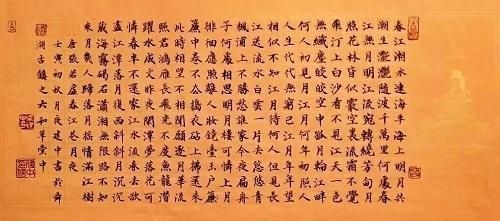 春江潮水連海平海上明月共
潮生灩灩隨波千萬里何處春
江無月明江流宛轉繞芳甸月
照花林皆似霰空裏流霜不覺
飛汀上白沙看不見江天一色
無纖塵皎皎空中孤月輪江畔
何人初見月江月何年初照人
人生代代無窮已江月年年望
相似不知江月待何人但見長
江送流水白雲一片去悠悠青
楓浦上不勝愁誰家今夜扁舟
子何處相思明月樓可憐上月
徘徊應照離人妝鏡臺玉戶簾
簾中卷不去擣衣砧上拂還來
此時相望不相聞願逐月華流
照君鴻雁長飛光不度魚龍潛
躍水成文昨夜閒潭夢落花可
憐春半不還家江水流春去欲
盡江潭落月復西斜斜月沉沉
藏海霧碣石瀟湘無限路不知
乘月幾人歸落月搖情滿江樹
唐張若虛春江花月夜
壬寅初秋月夜建中書於舜
湖古鎮之六和草堂中